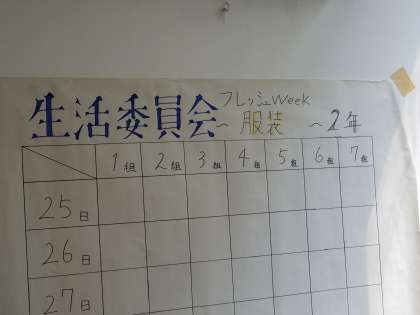 フレッシュWeek
生活委員会~服装 ~2年
1組 2組 3組 4組 5組 6組 7組
25日
26日
27日